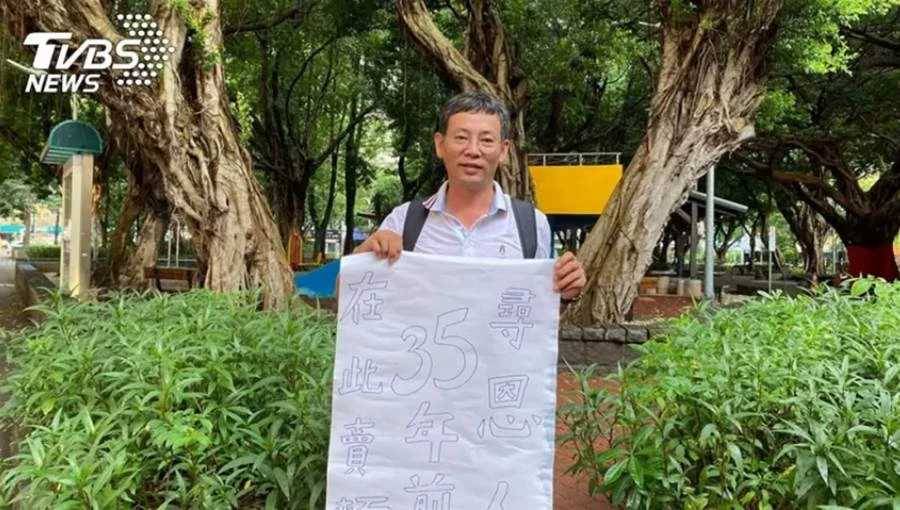 TVBS
NEWS
尋恩人
35年前
在此賣